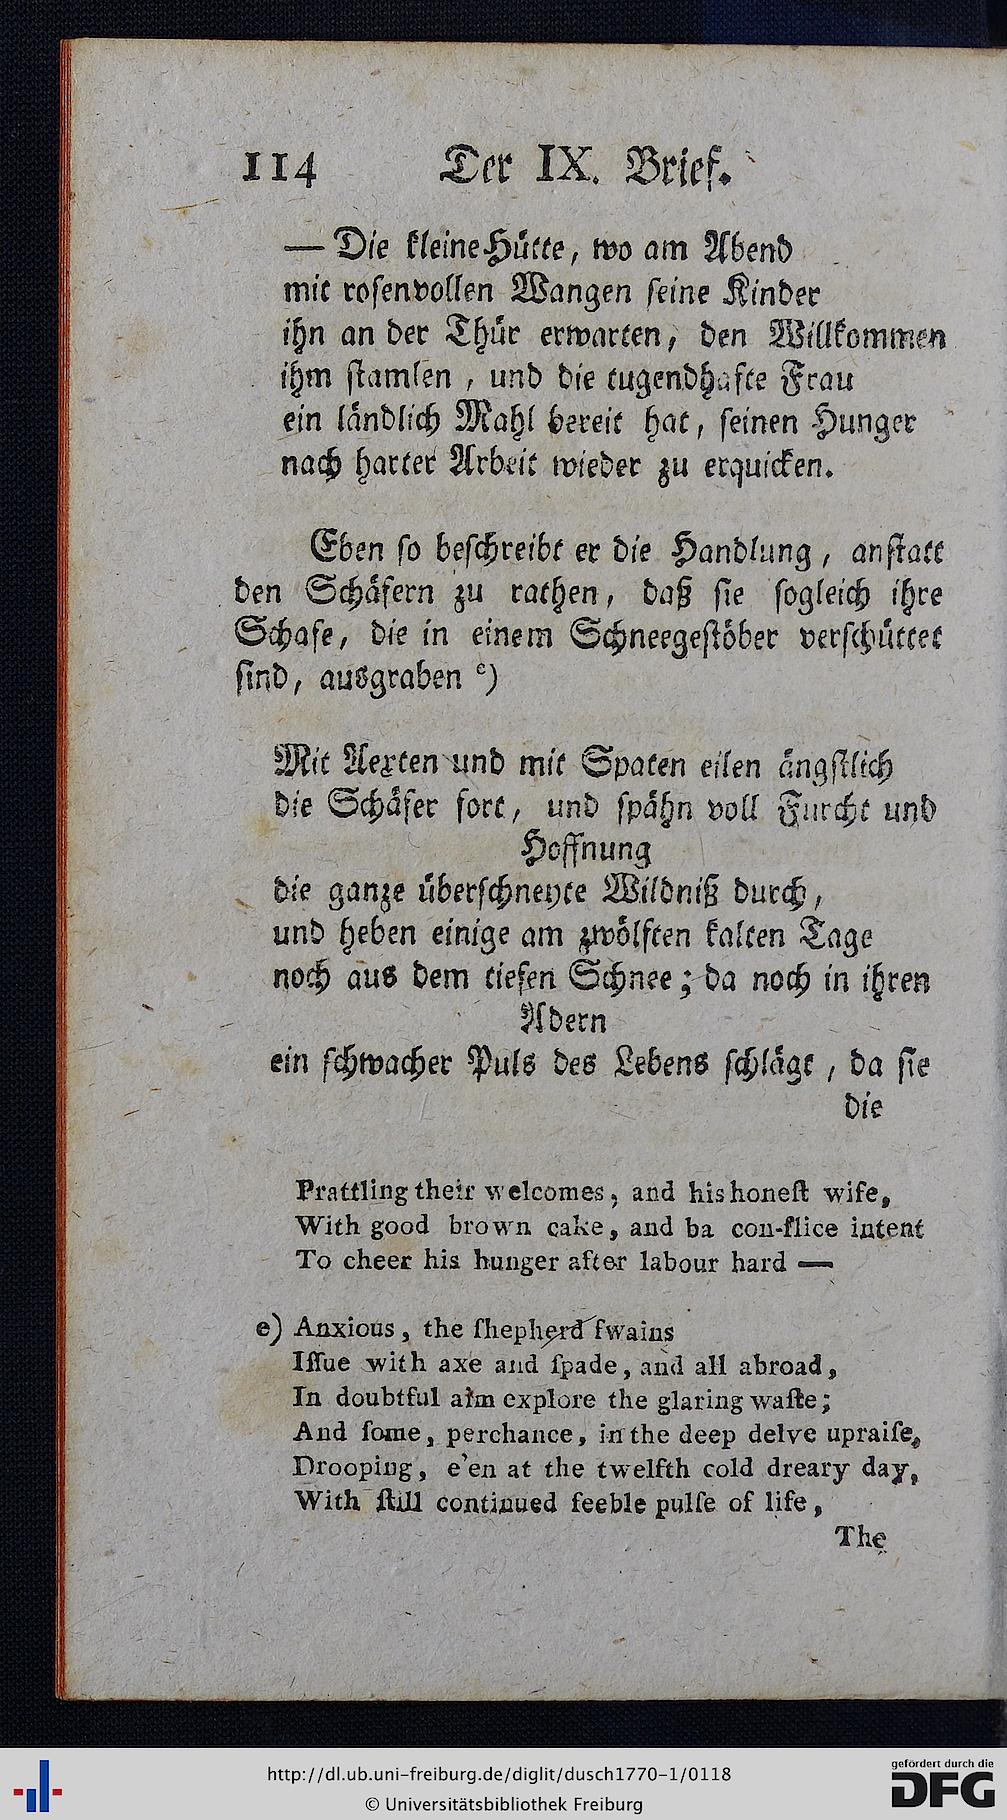 114 Der IX. Brief.
— Die kleine Hütte, wo am Abend
mit rosenvollen Wangen seine Kinder
ihn an der Thür erwarten, den Willkommen
ihm stamlen, und die tugendhafte Frau
ein ländlich Mahl bereit hat, seinen Hunger
nach harter Arbeit wieder zu erquicken.
Eben so beschreibt er die Handlung, anstatt
den Schäfern zu rathen, daß sie sogleich ihre
Schafe, die in einem Schneegestöber verschüttet
sind, ausgraben e)
Mit Aexten und mit Spaten eilen ängstlich
die Schäfer fort, und spähn voll Furcht und
Hoffnung
die ganze überschneyte Wildniß durch,
und heben einige am zwölften kalten Tage
noch aus dem tiefen Schnee; da noch in ihren
Adern
ein schwacher Puls des Lebens schlägt, da sie
die
Prattling their welcomes, and his honeſt wife,
With good brown cake, and ba con-ſlice intent
To cheer his hunger after labour hard —
e) Anxious, the ſhepherd ſwains
Iſſue with axe and ſpade, and all abroad,
In doubtful aim explore the glaring waſte;
And ſome, perchance, in the deep delve upraiſe,
Drooping, e'en at the twelfth cold dreary day,
With ſtill continued feeble pulſe of life,
The
http://dl.ub.uni-freiburg.de/diglit/dusch1770-1/0118
© Universitätsbibliothek Freiburg
gefördert durch die
DFG